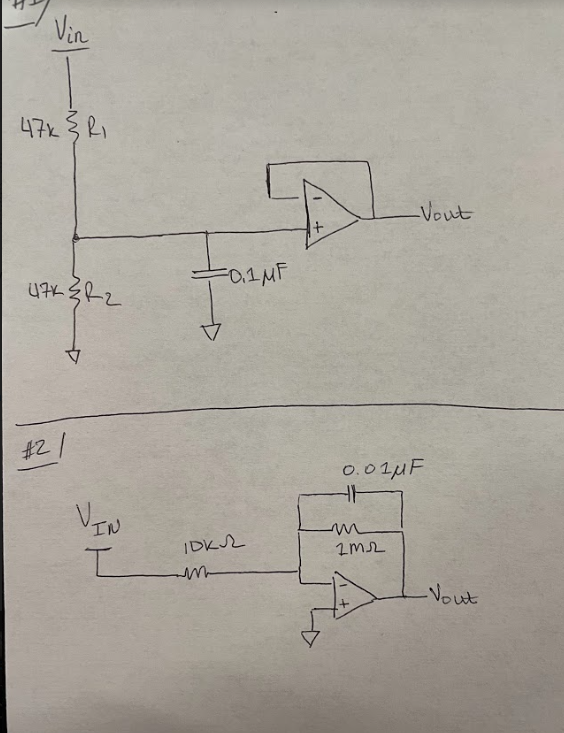 #1/
Vin
47k R1
- Vout
+
47k R2
0.1µF
#2/
0.01µF
VIN
10KΩ
1MΩ
- Vout
+